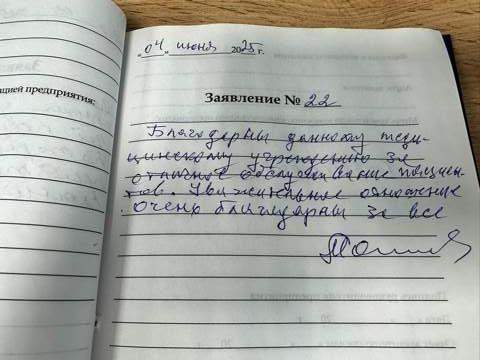 "04" июня 2025 г.
Заявление № 22
цией предприятия:
Благодарны данному меди-
цинскому учреждению за
отличное обслуживание пациен-
тов. Уважительное отношение
очень благодарны за все